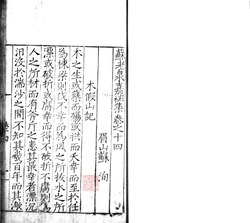 蘇老泉嘉祐集卷之十四
眉山蘇洵
木假山記
木之生或蘖而殤或拱而夭幸而至任
為棟梁則伐不幸而為風之所拔水之所
漂或破折或腐幸而得不破折不腐則為
人之所材而有斧斤之患其最幸者漂沉
汨沒於湍沙之間不知其幾百年而其激